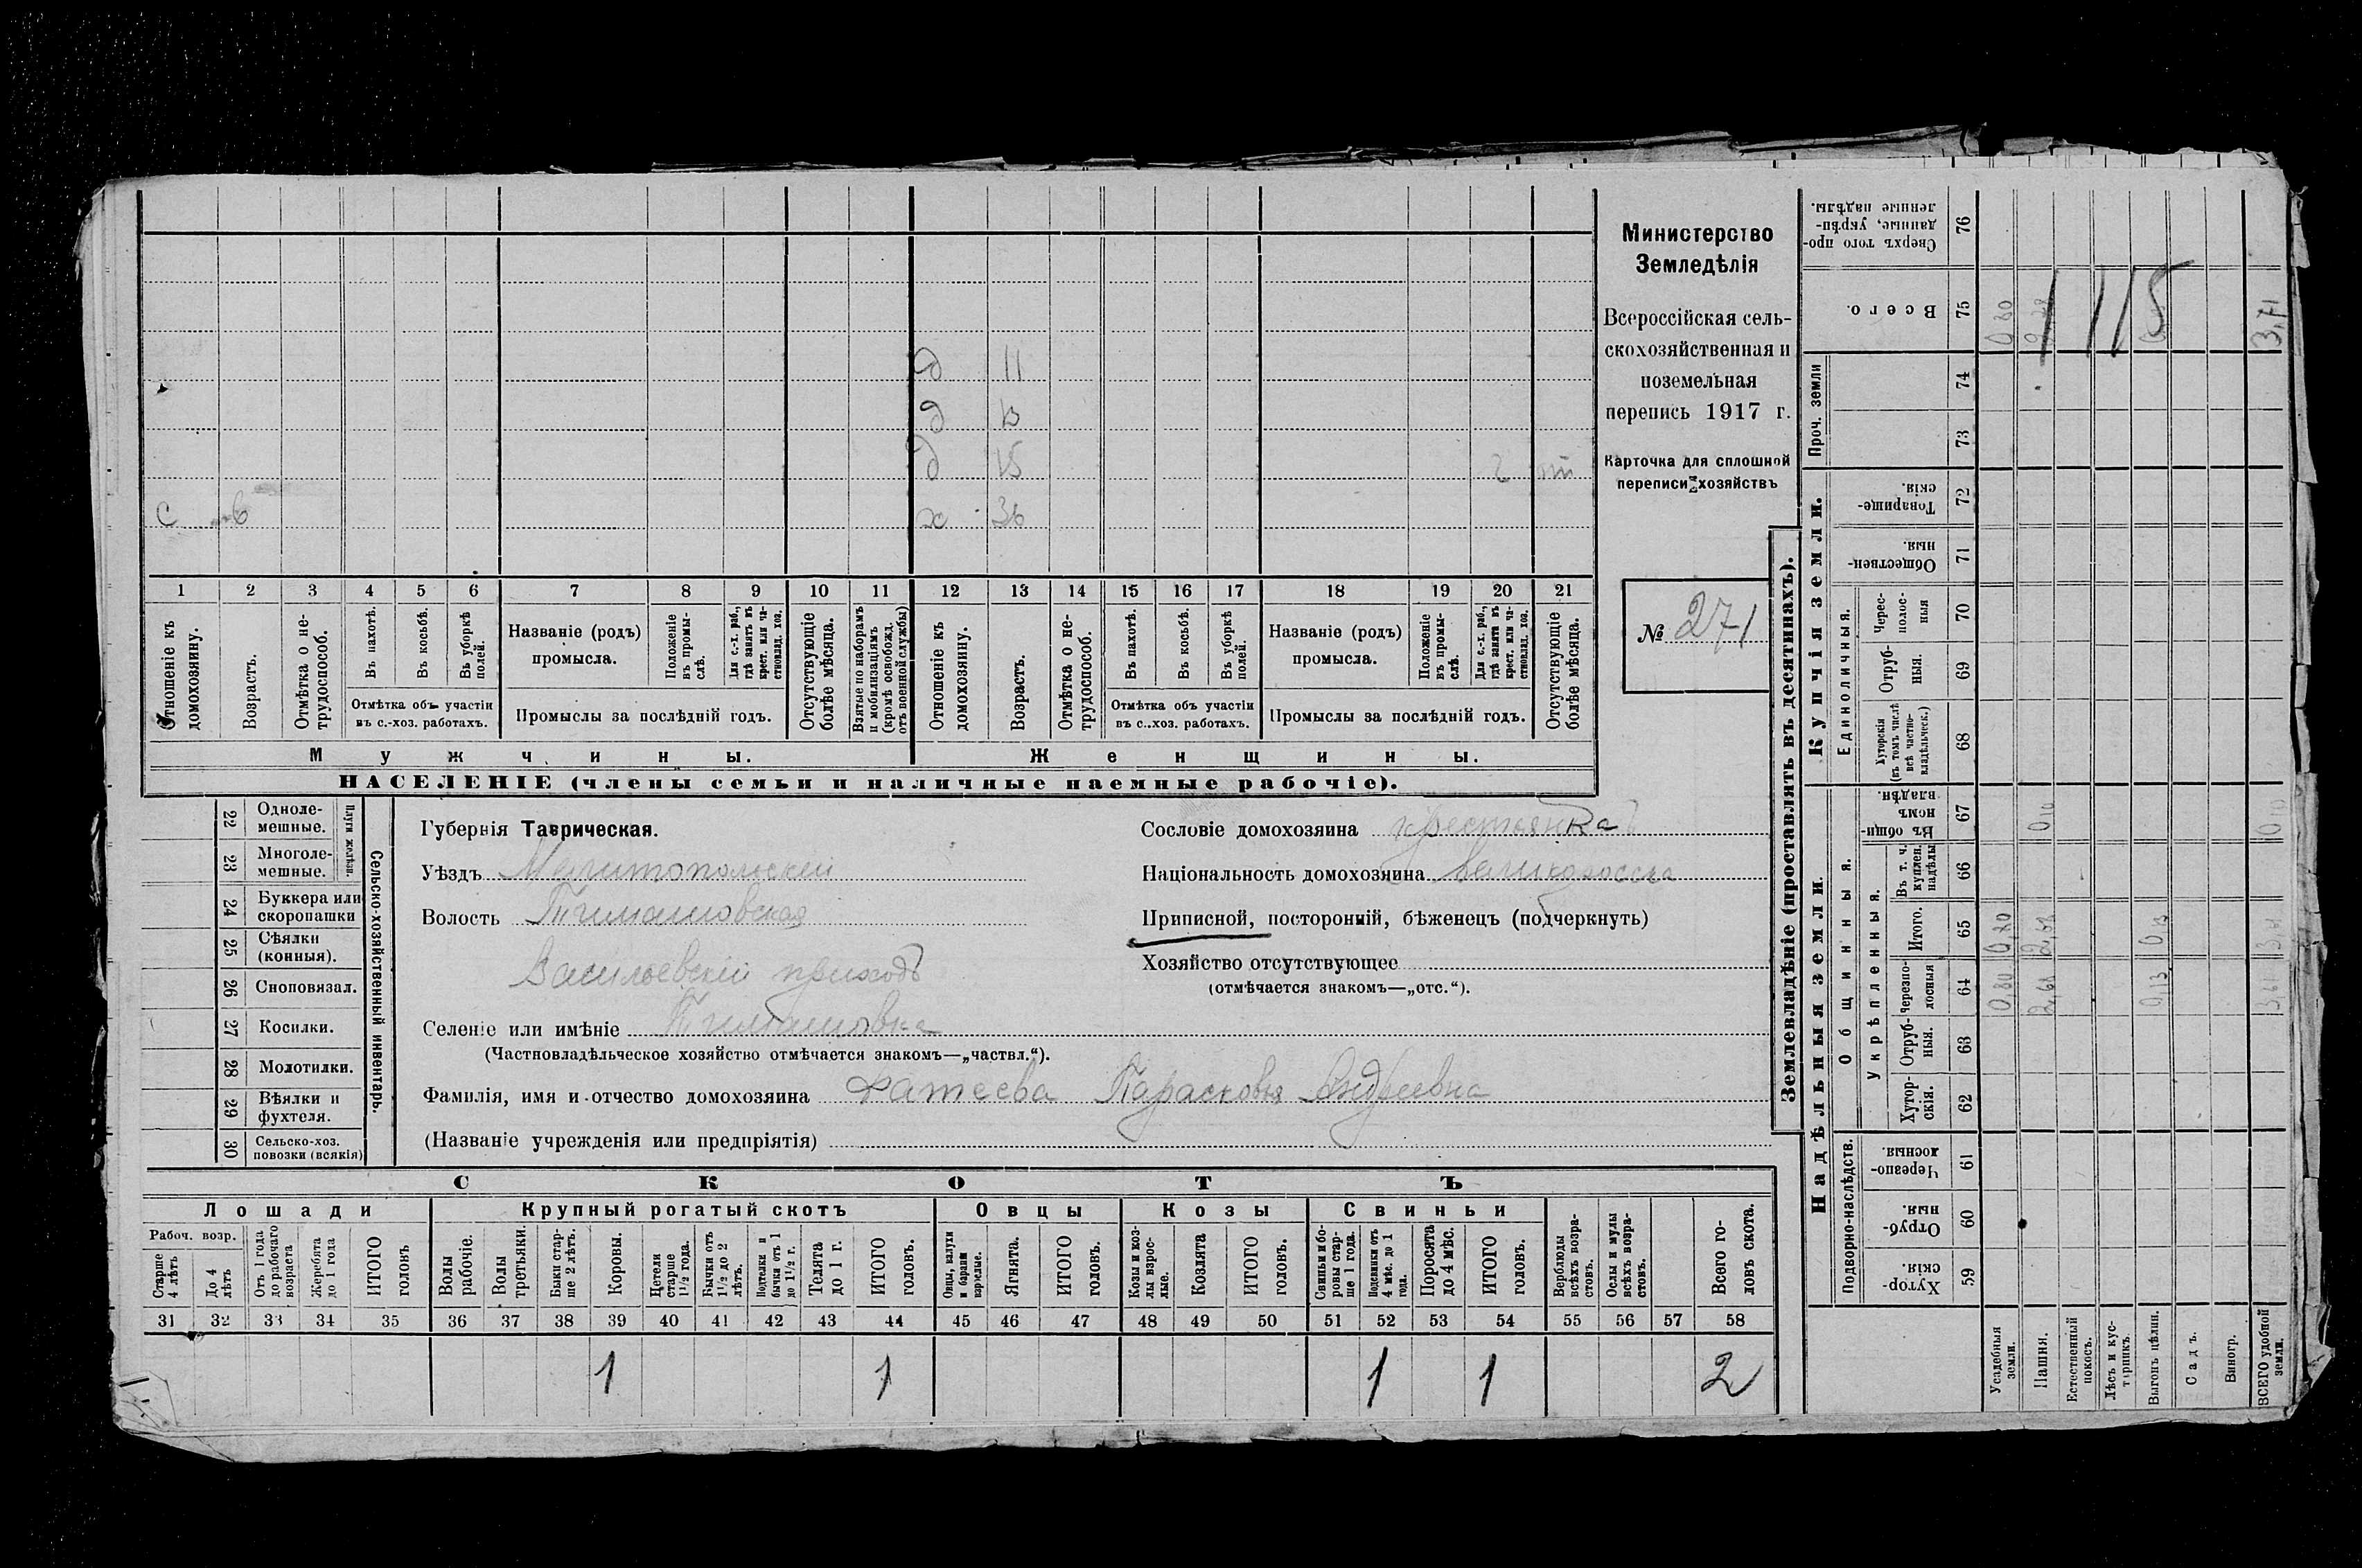 д 11
д 13
д 15
с 6 х 36
1 2 3 4 5 6 7 8 9 10 11 12 13 14 15 16 17 18 19 20 21
Отношеніе къ домохозяину.
Возрастъ.
Отмѣтка о не-
трудоспособ.
Въ пахотѣ.
Въ косьбѣ.
Въ уборкѣ полей.
Отмѣтка объ участіи
въ с.-хоз. работахъ.
Названіе (родъ)
промысла.
Положеніе въ промы-
слѣ.
Для с.-х. раб.,
гдѣ занятъ въ
крест. или ча-
стновлад. хоз.
Промыслы за послѣдній годъ.
Отсутствующіе
болѣе мѣсяца.
Взятые по наборамъ
и мобилизаціямъ
(кромѣ освобожд.
отъ военной службы)
Отношеніе къ
домохозяину.
Возрастъ.
Отмѣтка о не-
трудоспособ.
Въ пахотѣ.
Въ косьбѣ.
Въ уборкѣ
полей.
Отмѣтка объ участіи
въ с.-хоз. работахъ.
Названіе (родъ)
промысла.
Положеніе
въ промы-
слѣ.
Для с.-х. раб.,
гдѣ занята въ
крест. или ча-
стновлад. хоз.
Промыслы за послѣдній годъ.
Отсутствующіе
болѣе мѣсяца.
Мужчины.
Женщины.
НАСЕЛЕНІЕ (члены семьи и наличные наемные рабочіе).
Министерство
Земледѣлія
Всероссійская сель-
скохозяйственная и
поземельная
перепись 1917 г.
Карточка для сплошной
переписи хозяйствъ
№ 271
22 Одноле-
мешные.
23 Многоле-
мешные.
Плуги желѣзн.
24 Буккера или
скоропашки
25 Сѣялки
(конныя).
26 Сноповязал.
27 Косилки.
28 Молотилки.
29 Вѣялки и
фухтеля.
30 Сельско-хоз.
повозки (всякія)
Сельско-хозяйственный инвентарь.
Губернія Таврическая.
Уѣздъ Мелитопольскій
Волость Тимашовская
Васильевскій приходъ
Селеніе или имѣніе Тимашовка
(Частновладѣльческое хозяйство отмѣчается знакомъ—„частвл.“).
Фамилія, имя и отчество домохозяина Фатеева Парасковья Андреевна
(Названіе учрежденія или предпріятія)
Сословіе домохозяина крестьянка
Національность домохозяина великоросска
Приписной, посторонній, бѣженецъ (подчеркнуть)
Хозяйство отсутствующее
(отмѣчается знакомъ—„отс.“).
СКОТЪ
Лошади
Крупный рогатый скотъ
Овцы
Козы
Свиньи
Рабоч. возр.
Старше
4 лѣтъ
До 4
лѣтъ
Отъ 1 года
до рабочаго
возраста
Жеребята
до 1 года
ИТОГО
головъ
Волы
рабочіе.
Волы
третьяки.
Быки стар-
ше 2 лѣтъ.
Коровы.
Нетели
старше
1½ года.
Бычки отъ
1½ до 2
лѣтъ.
Подтелки и
бычки отъ 1
до 1½ г.
Телята
до 1 г.
ИТОГО
головъ.
Овцы, валухи
и бараны
взрослые.
Ягнята.
ИТОГО
головъ.
Козы и коз-
лы взрос-
лые.
Козлята
ИТОГО
головъ.
Свиньи и бо-
ровы стар-
ше 1 года.
Подсвинки отъ
4 мѣс. до 1
года.
Поросята
до 4 мѣс.
ИТОГО
головъ.
Верблюды
всѣхъ возра-
стовъ.
Ослы и мулы
всѣхъ возра-
стовъ.
Всего го-
ловъ скота.
31 32 33 34 35 36 37 38 39 40 41 42 43 44 45 46 47 48 49 50 51 52 53 54 55 56 57 58
1 1 1 1 2
Землевладѣніе (проставлять въ десятинахъ).
Надѣльныя земли
Купчія земли.
Проч. земли
Подворно-наслѣдств.
Общинныя.
Укрѣпленныя.
Единоличныя.
Сверхъ того про-
данные, укрѣп-
ленные надѣлы. 76
Всего. 75 0,80 115 3,71
74
73
Товарище-
скія. 72
Обществен-
ныя. 71
Черес-
полос-
ныя 70
Отруб-
ныя. 69
Хуторскія
(въ томъ числѣ
всѣ частно-
владѣльческ.) 68
Въ общин-
номъ
владѣн. 67 0,10 0,10
Въ т. ч.
куплен.
надѣлы 66
Итого. 65 0,80 2,68 0,13 3,61
Черезпо-
лосныя 64 0,80 2,68 0,13 3,61
Отруб-
ныя. 63
Хутор-
скія. 62
Черезпо-
лосныя. 61
Отруб-
ныя. 60
Хутор-
скія. 59
Усадебныя
земли.
Пашня.
Естественный
покосъ.
Лѣсъ и кус-
тарникъ.
Выгонъ цѣлин.
Садъ.
Виногр.
ВСЕГО удобной
земли.